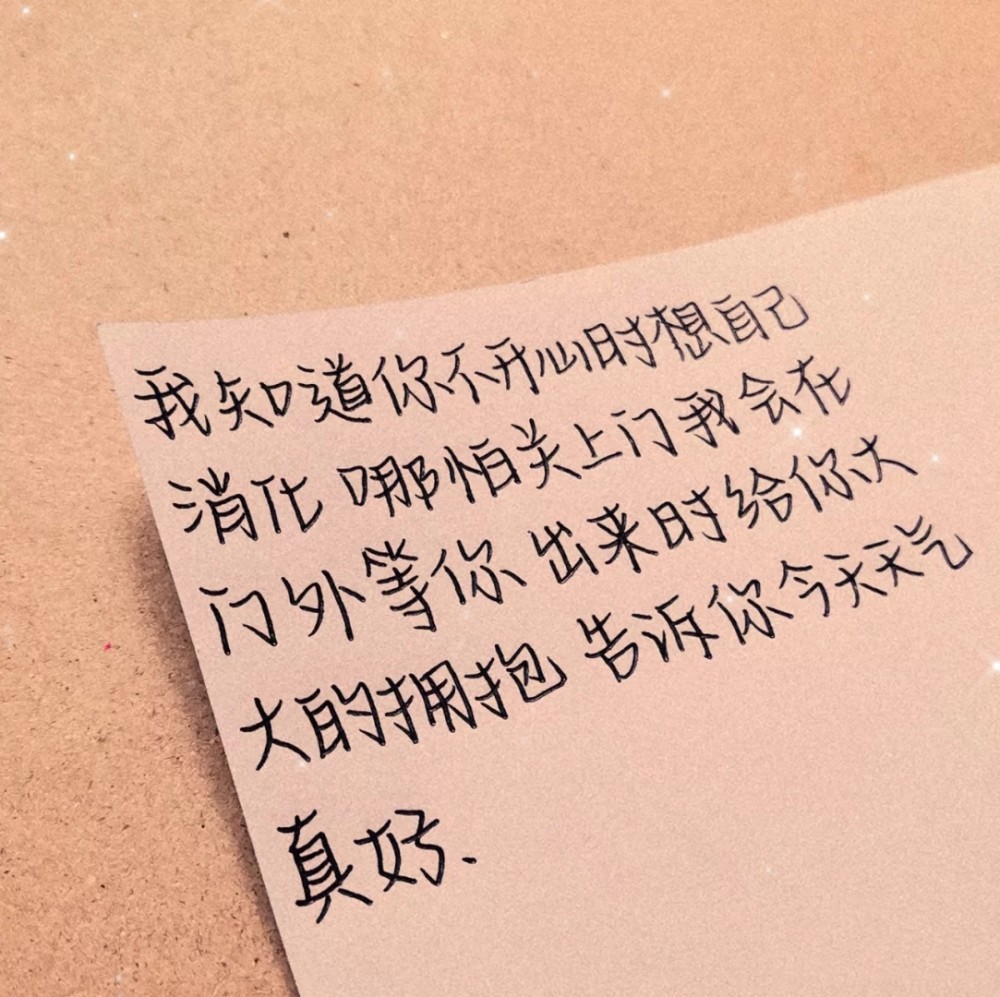 我知道你不开心时想自己
消化 哪怕关上门我会在
门外等你 出来时给你大
大的拥抱 告诉你今天天气
真好.